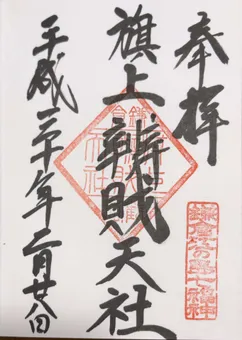 奉拝
鎌倉江の島七福神
旗上辨財天社
平成三十年二月廿八日